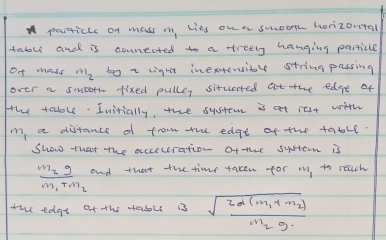 A particle of mass m₁ lies on a smooth horizontal
table and is connected to a freely hanging particle
of mass m₂ by a light inextensible string passing
over a smooth fixed pulley situated at the edge of
the table. Initially, the system is at rest with
m₁ a distance d from the edge of the table.
Show that the acceleration of the system is
m₂ g / m₁+m₂ and that the time taken for m₁ to reach
the edge of the table is √(2d(m₁+m₂) / m₂ g).